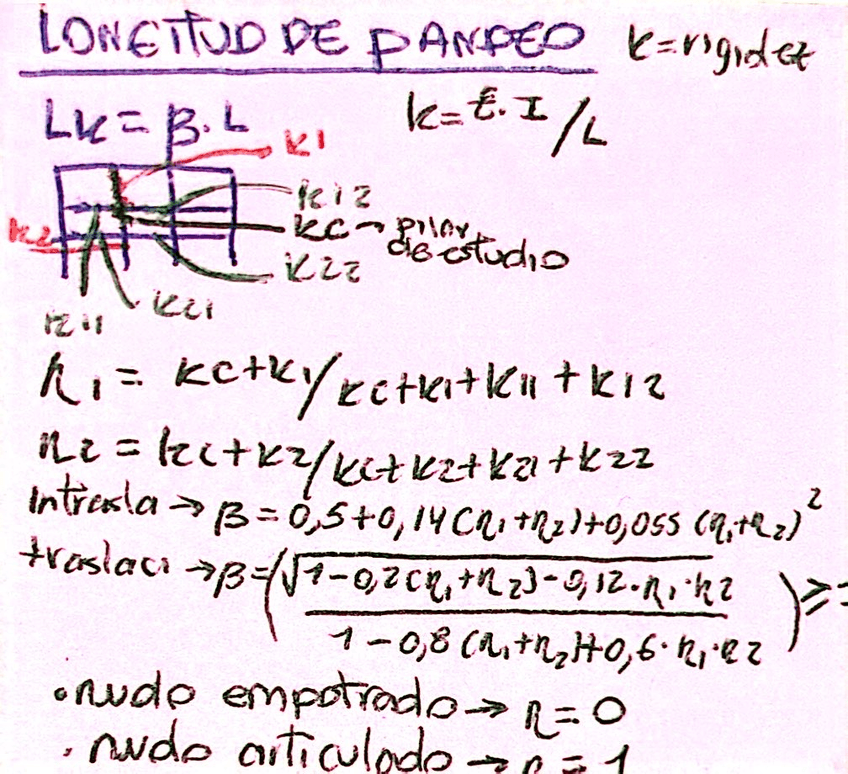 LONGITUD DE PANDEO k=rigidez
Lk = β.L k=E.I/L
k1
k12
kc → pilar de estudio
k2
k22
k21
k11
η1 = kc+k1/kc+k1+k11+k12
η2 = kc+k2/kc+k2+k21+k22
intrasla → β=0,5+0,14(η1+η2)+0,055(η1+η2)²
traslaci → β=(√1-0,2(η1+η2)-0,12·η1·η2
1-0,8(η1+η2)+0,6·η1·η2) ≥
·nudo empotrado → η=0
·nudo articulado → η=1